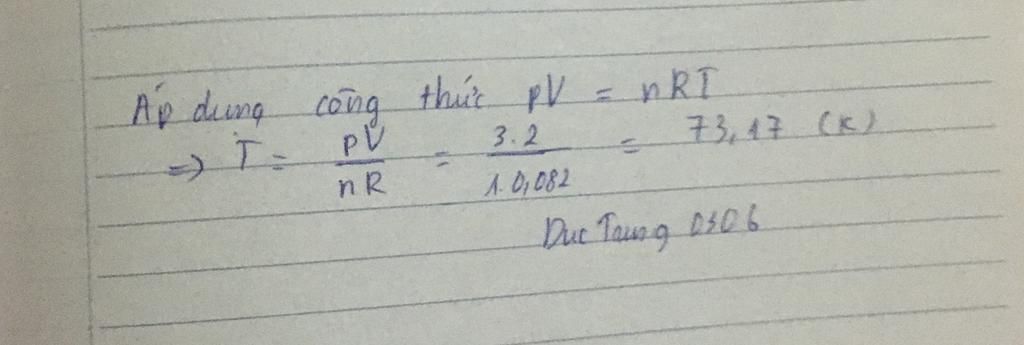 Áp dụng công thức pV = nRT
=> T = pV/nR = 3.2/1.0,082 = 73,17 (K)
Duc Trung 0306